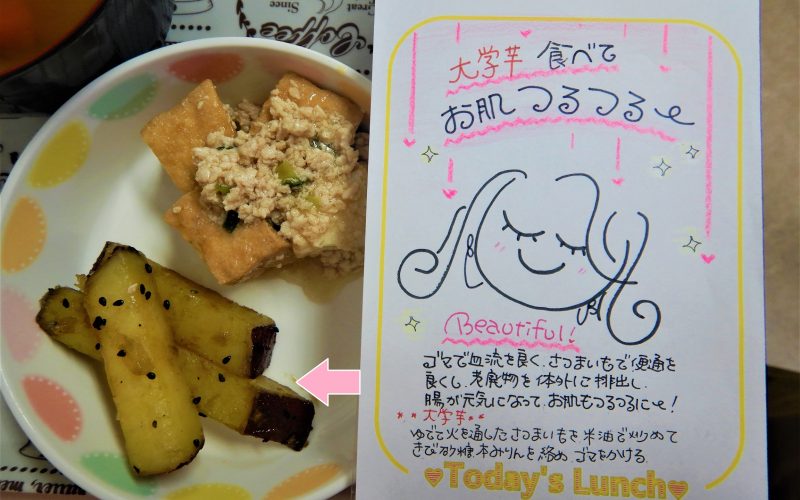 大学芋 食べて
お肌つるつる
Beautiful!
ゴマで血流を良く、さつまいもで便通を
良くし、老廃物を体外に排出し、
腸が元気になって、お肌もつるつるに!
**大学芋**
ゆでて火を通したさつまいもを米油で炒めて
きび砂糖本みりんを絡めゴマをかける。
Today's Lunch
Since
Coffee
great